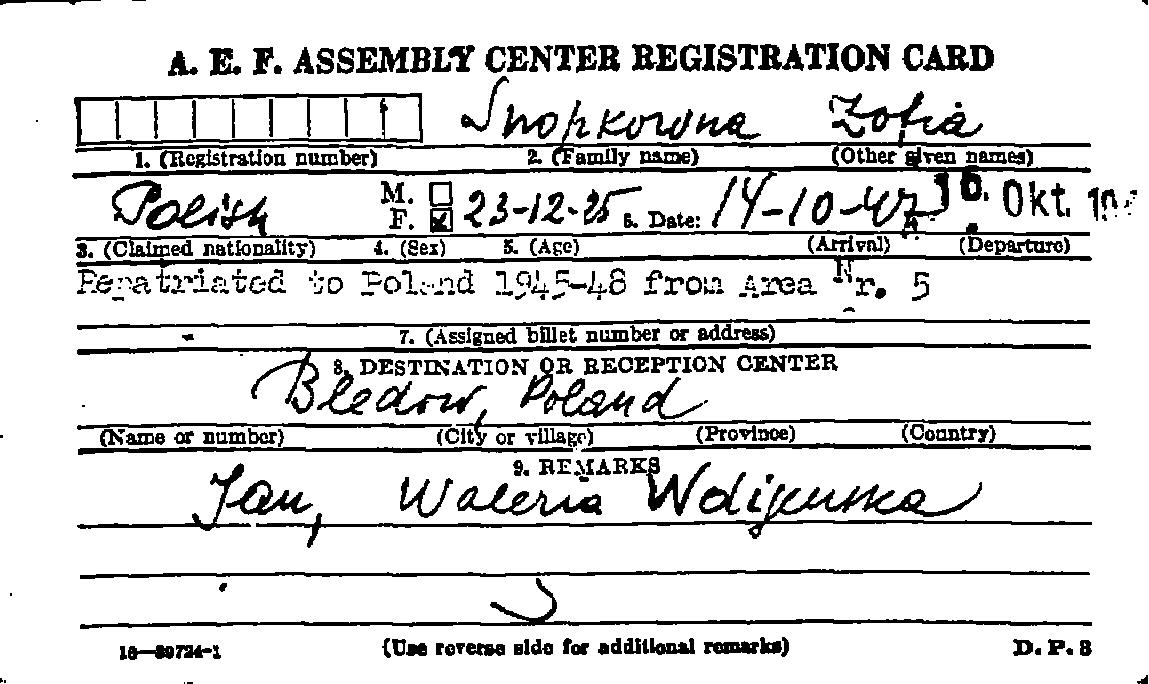 A. E. F. ASSEMBLY CENTER REGISTRATION CARD
Snopkowna Zofia
1. (Registration number) 2. (Family name) (Other given names)
Polish M. F. 23-12-25 6. Date: 14-10-47 Okt.
3. (Claimed nationality) 4. (Sex) 5. (Age) (Arrival) (Departure)
Repatriated to Poland 1945-48 from Area Nr. 5
7. (Assigned billet number or address)
8. DESTINATION OR RECEPTION CENTER
Bledow, Poland
(Name or number) (City or village) (Province) (Country)
9. REMARKS
Jan, Waleria
16—39724-1 (Use reverse side for additional remarks) D. P. 3